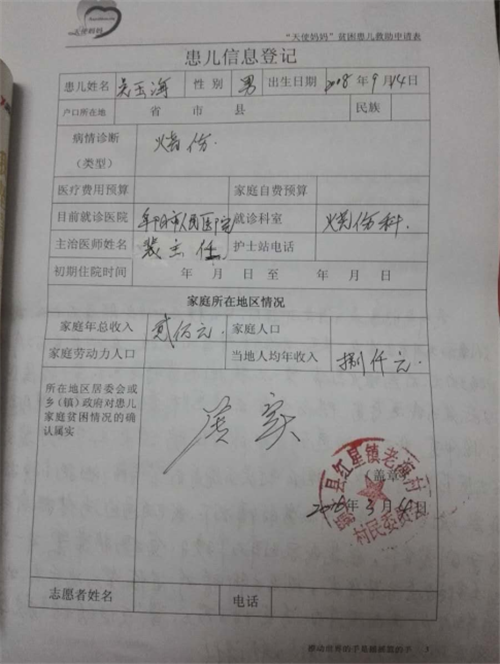 天使妈妈
“天使妈妈”贫困患儿救助申请表
患儿信息登记
患儿姓名 吴玉海 性别 男 出生日期 2008年9月14日
户口所在地 省 市 县 民族
病情诊断 烧伤
(类型)
医疗费用预算 家庭自费预算
目前就诊医院 阜阳市人民医院 就诊科室 烧伤科.
主治医师姓名 裴主任 护士站电话
初期住院时间 年 月 日 至 年 月 日
家庭所在地区情况
家庭年总收入 贰佰元. 家庭人口
家庭劳动力人口 当地人均年收入 捌仟元.
所在地区居委会或
乡(镇)政府对患儿
家庭贫困情况的确
认属实
属实
县红星镇老海村
(盖章)
年3月 日
村民委员会
志愿者姓名 电话